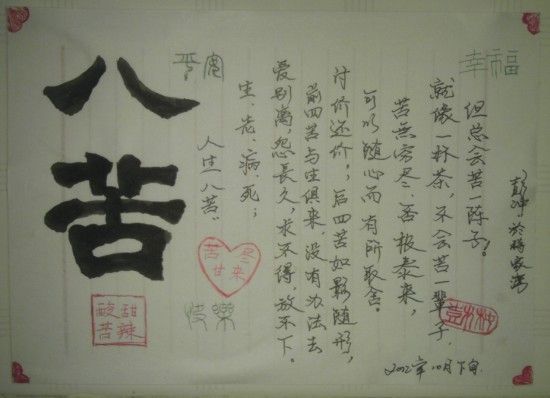 八苦
平安
人生八苦:
生、老、病、死;
爱别离,怨長久,求不得,放不下。
前四苦与生俱来,没有办法去
讨价还价;后四苦如影随形,
可以随心而有所取舍。
苦無穷尽、否极泰来,
就像一杯茶,不会苦一辈子,
但总会苦一阵子!
幸福
彭坤 於杨家湾
2012年10月下旬
苦尽甘来
快樂
酸甜苦辣